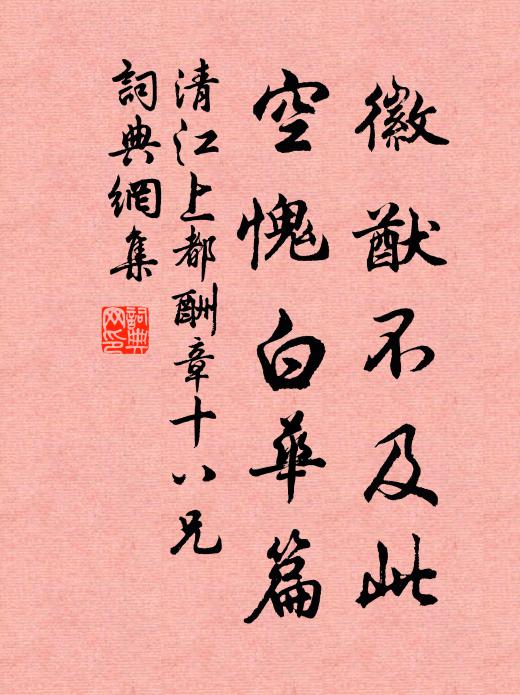 徽猷不及此
空愧白華篇
清江上都酬章十八兄
詞典網集
詞典網印